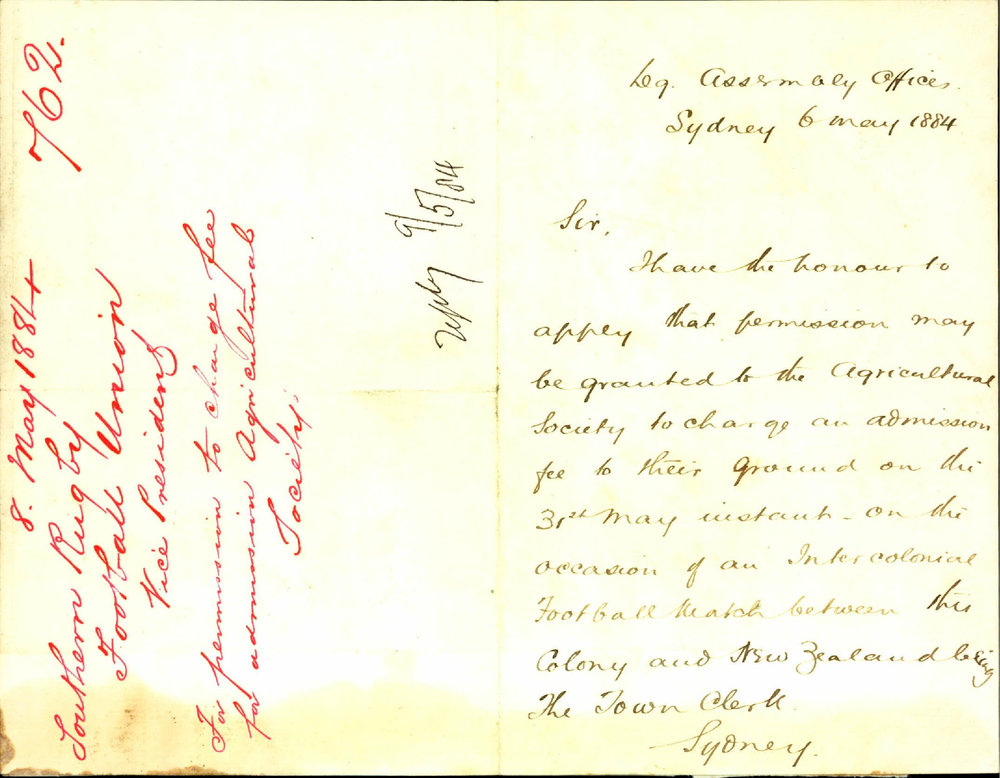 762.
8. May 1884
Southern Rugby
Football Union
Vice President
For permission to charge fee
for admission Agricultural
Society.
reply 9/5/84
Leg. Assembly Offices.
Sydney 6 May 1884
Sir,
I have the honour to
apply that permission may
be granted to the Agricultural
Society to charge an admission
fee to their Ground on the
31st May instant - on the
occasion of an Intercolonial
Football Match between this
Colony and New Zealand being
The Town Clerk.
Sydney.